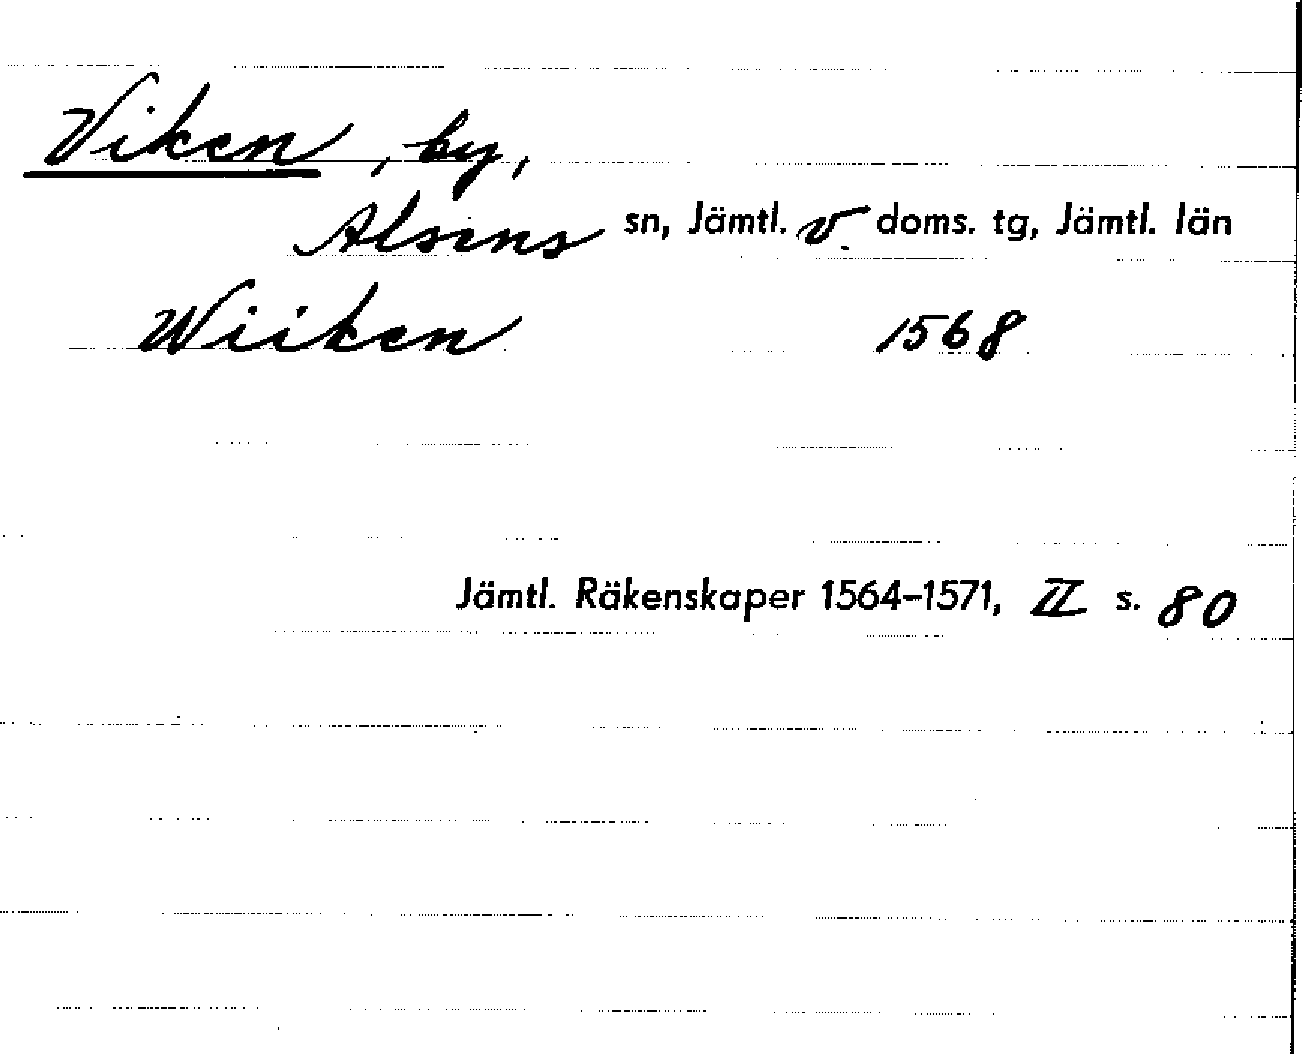 Viken, by,
Alsens sn, Jämtl. v. doms. tg, Jämtl. län
Wiiken 1568
Jämtl. Räkenskaper 1564-1571, II s. 80